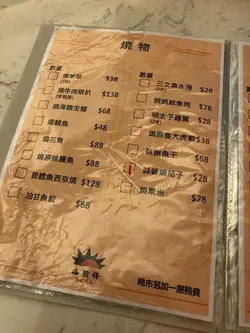 燒物
數量
$38
(2件)
燒牛肉眼扒 $138
燒海鹽生蠔 $68
燒鯖魚 $48
燒花魚 $88
燒原條鰻魚 $88
銀鱈魚西京燒 $128
油甘魚鮫 $68
數量
三文魚水漫 $28
(2件)
照燒魷魚筒 $78
明太子雞翼 $28
(2件)
燒原隻大虎蝦 $38
味醂魚干 $38
蒜蓉燒茄子 $28
燒粟米 $28
晚市另加一服務費